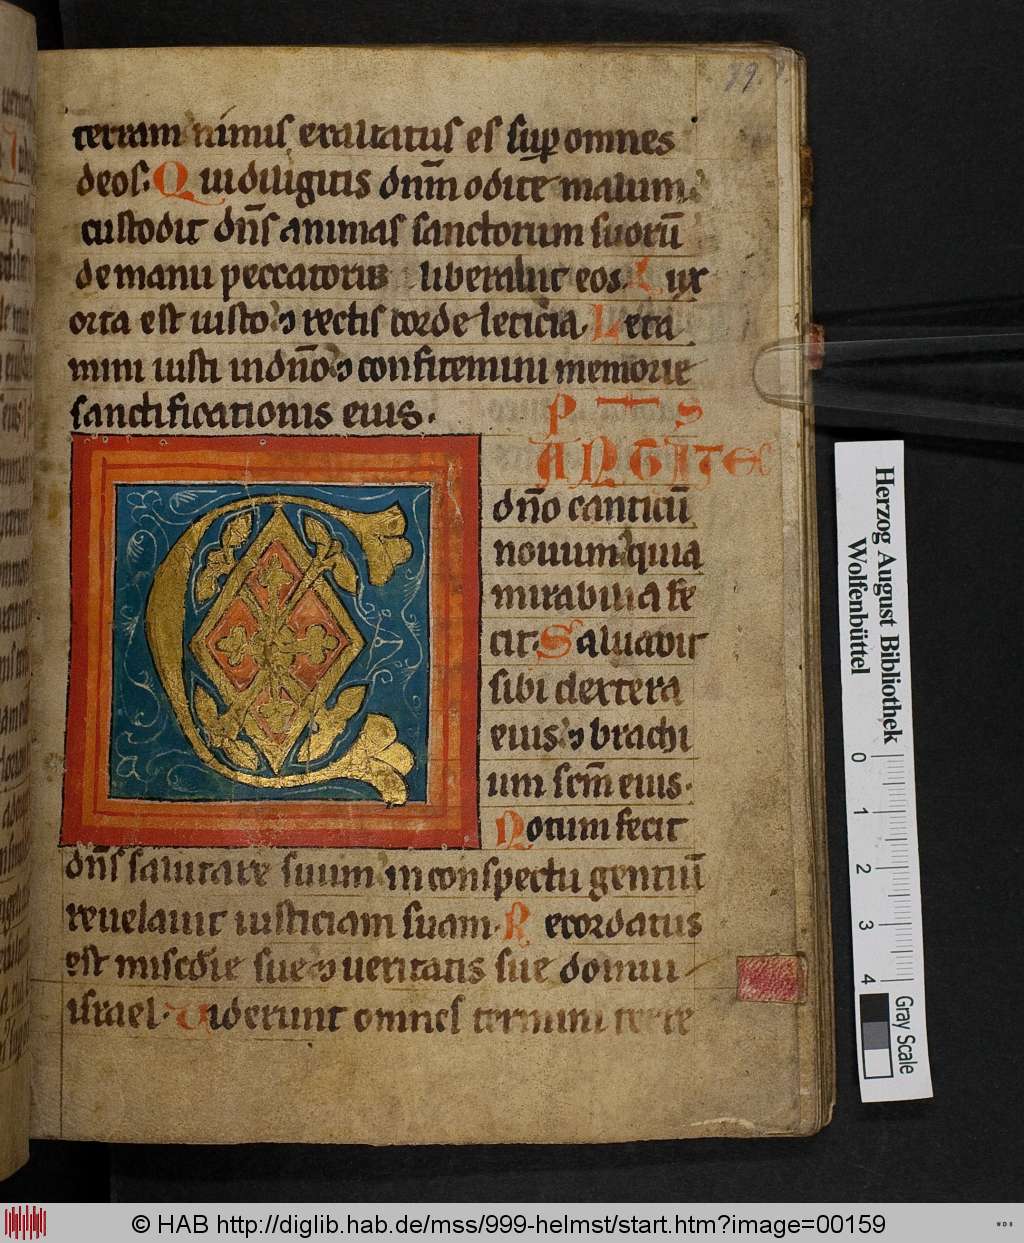 79.
terram nimis exaltatus es sup̱ omnes
deos. Qui diligitis dnm̄ odite malum
custodit dn̄s animas sanctorum suorū
de manu peccatoris liberabit eos. Lux
orta est iusto ⁊ rectis corde leticia. Leta
mini iusti in dn̄o ⁊ confitemini memorie
sanctificationis eius.
P S
ANTATE
dn̄o canticū
novum quia
mirabilia fe
cit. Saluabit
sibi dextera
eius ⁊ brachi
um scm̄ eius.
Notum fecit
dn̄s salutare suum in conspectu gentiū
reuelauit iusticiam suam. Recordatus
est miscd̄ie sue ⁊ ueritatis sue domui
israel. Viderunt omnes termini terre
Herzog August Bibliothek
Wolfenbüttel
0 1 2 3 4
Gray Scale
© HAB http://diglib.hab.de/mss/999-helmst/start.htm?image=00159
WDB